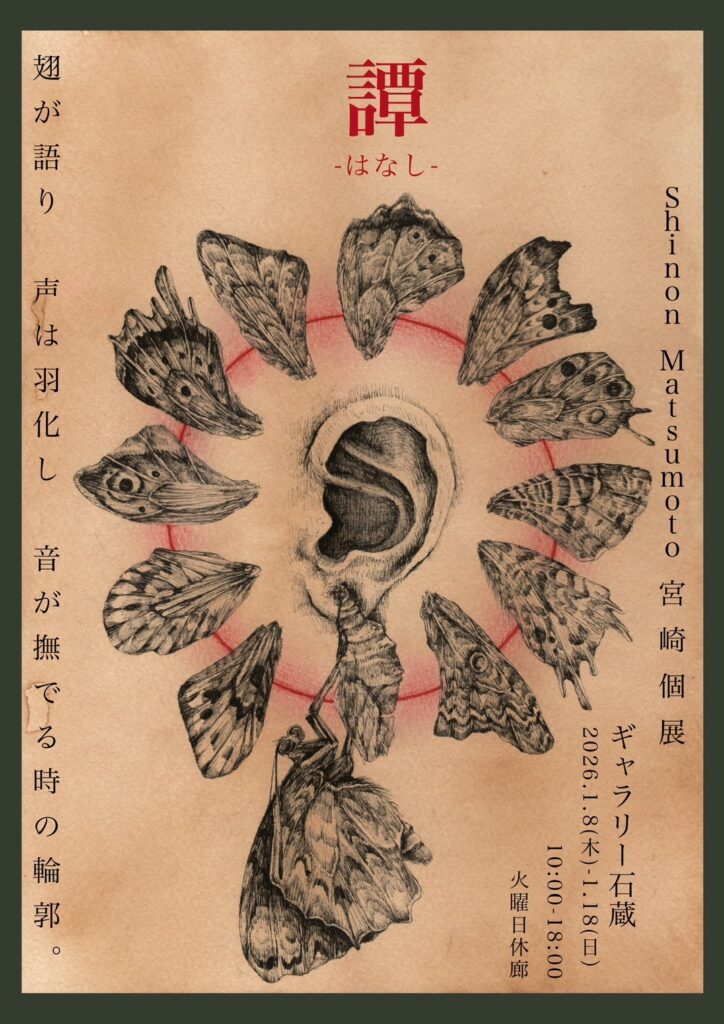 譚
-はなし-
Shinon Matsumoto 宮崎個展
ギャラリー石蔵
2026.1.8(木)-1.18(日)
10:00-18:00
火曜日休廊
翅が語り　声は羽化し　音が撫でる時の輪郭。